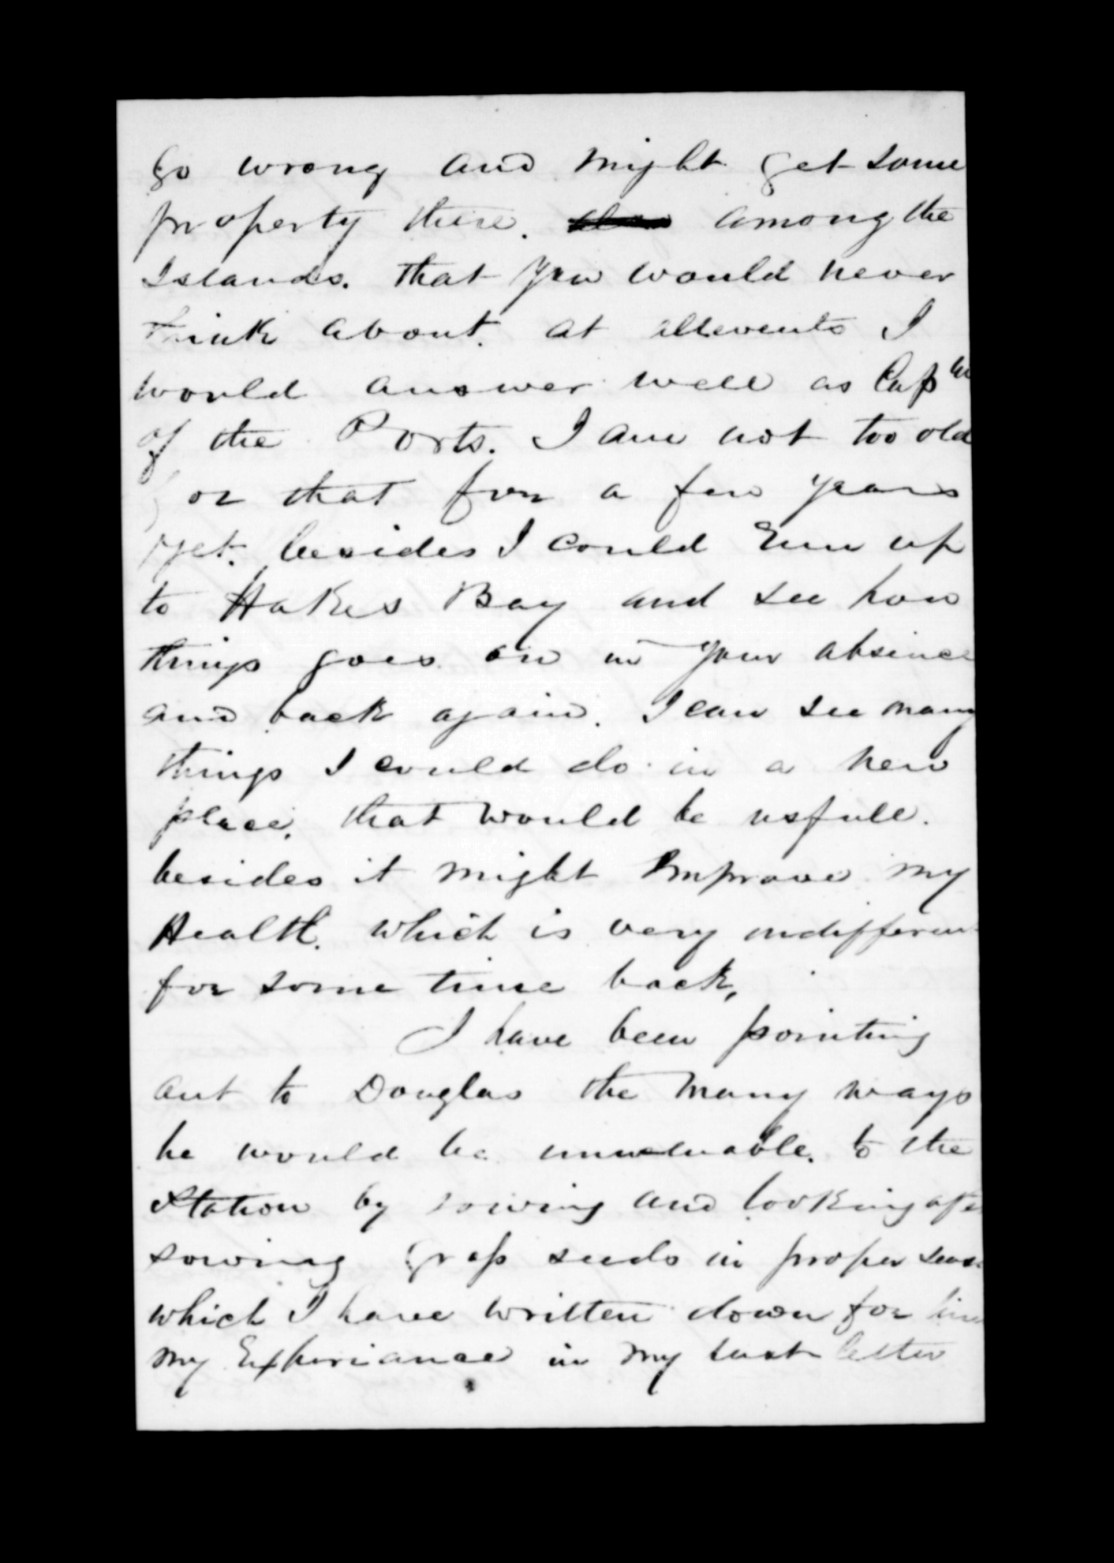 Go wrong and might get some
property there. among the
Islands. that you would never
think about. at allevents I
would answer well as Captn
of the Ports. I am not too old
for that for a few years
yet. besides I could run up
to Hakes Bay and see how
things goes on in your absince
and back again. I can see many
things I could do in a new
place. that would be usfull.
besides it might Improve my
Health. which is very indifferent
for some time back,
I have been pointing
out to Douglas the many ways
he would be to the
Station by sowing and looking after
sowing Grass seeds in proper
which I have written down for him
my Experiance in my last letter